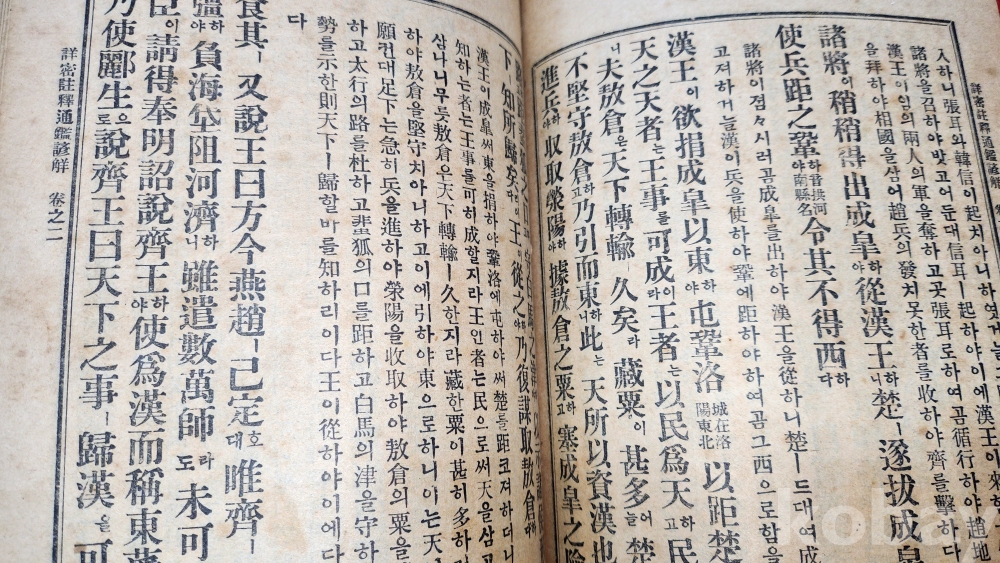 詳密註釋通鑑諺解
入하니張耳와韓信이起치아니하얏거늘
諸將을김하야밧고어두운대信耳ㅣ起하야이에漢王이來하
漢王이임의兩人의軍을奪하고곳張耳로하여곰循行하야趙地
을拜하야相國을삼어趙兵의發치못한者를收하야齊를擊하다
諸將이稍稍得出成皐하야從漢王하니楚ㅣ遂拔成皐
諸將이점々시러곰成皐를出하야漢王을從하니楚ㅣ드대여成
고져하거늘漢이兵을使하야鞏에距하야하여곰그西으로함을
使兵距之鞏하야音拱河南縣名令其不得西하다
漢王이欲捐成皐以東하야屯鞏洛城在洛陽東北以距楚
天之天者는王事를可成이라王者는以民爲天하고民
니夫敖倉은天下轉輸ㅣ久矣라藏粟이甚多늘어
不堅守敖倉하고乃引而東하니此는天所以資漢也
進兵하야收取滎陽하야據敖倉之粟하고塞成皐之險
下ㅣ知所歸矣리이다王이從之하야乃復謀取敖倉
漢王이成皐써東을捐하야鞏洛에屯하야써楚를距코져하더니
知하는者는王事를可히成할지라王인者는民으로써天을삼고
삼나니무릇敖倉은天下轉輸ㅣ久한지라藏한粟이甚히多하
하야敖倉을堅守치아니하고이에引하야東으로하니이는天
願컨대足下는急히兵을進하야滎陽을收取하야敖倉의粟을
하고太行의路를杜하고蜚狐의口를距하고白馬의津을守하
勢를示한則天下ㅣ歸할바를知하리이다王이從하야이에다
다
食其ㅣ又說王曰方今燕趙ㅣ已定호대唯齊ㅣ
彊하야負海岱阻河濟하니雖遣數萬師라도未可
臣이請得奉明詔說齊王하야使爲漢而稱東藩
乃使酈生으로說齊王曰天下之事ㅣ歸漢을可
詳密註釋通鑑諺解 卷之二